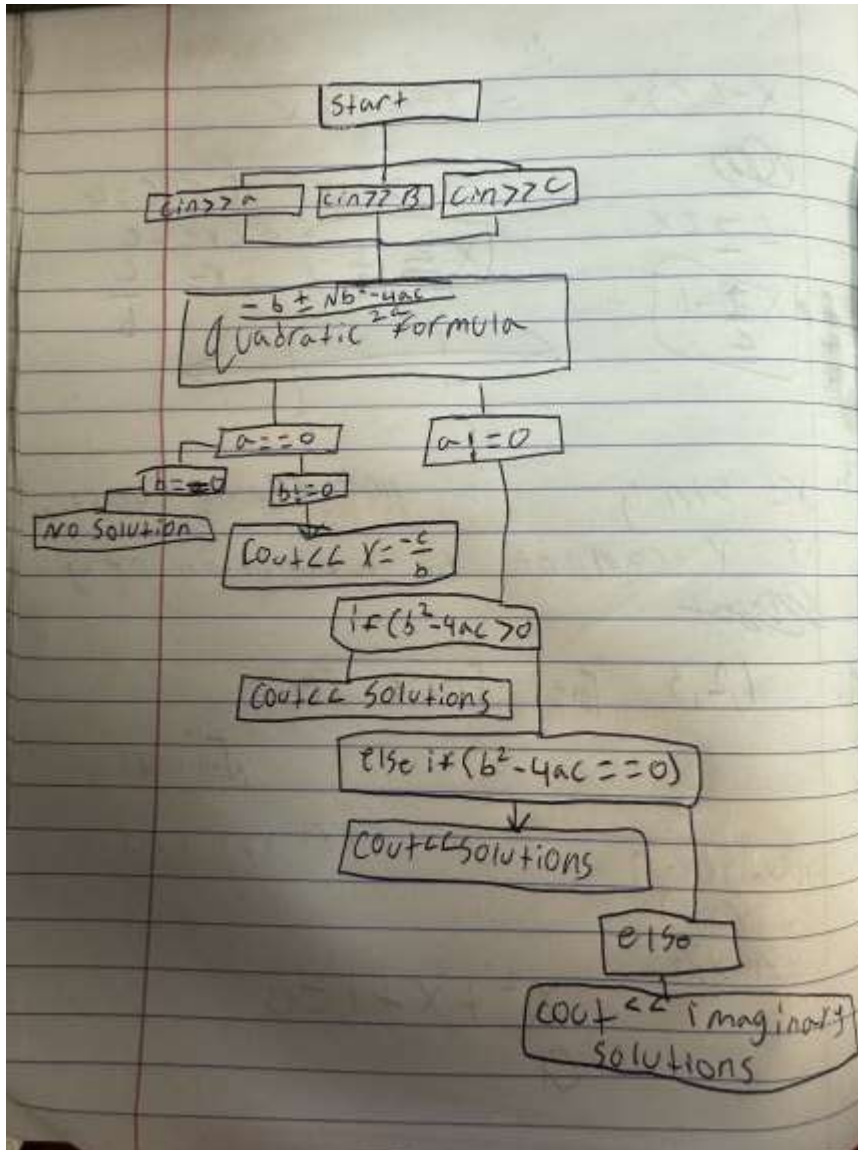 Start
cin>>a
cin>>B
cin>>C
-b ± √b²-4ac
2a
Quadratic Formula
a==0
a!=0
b==0
b!=0
No Solution
Cout<< X=-c/b
if(b²-4ac>0
Cout<< Solutions
else if(b²-4ac==0)
Cout<<Solutions
else
cout<< imaginary
Solutions